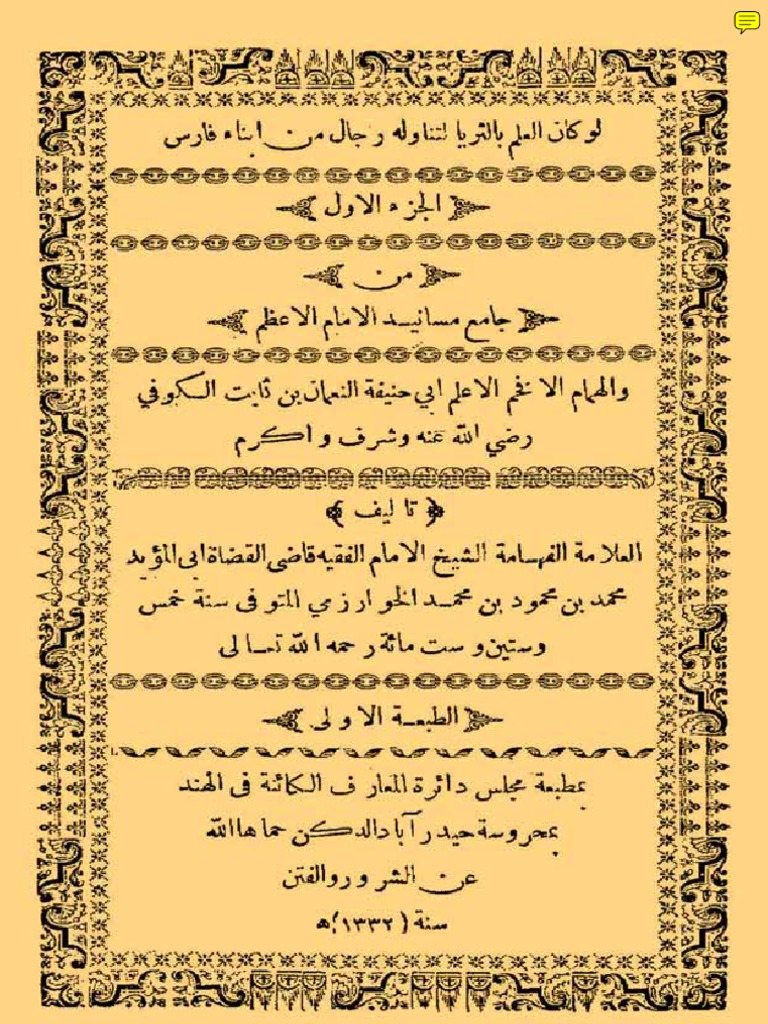 لو كان العلم بالثريا لتناوله رجال من ابناء فارس
الجزء الاول
من
جامع مسانيد الامام الاعظم
والهمام الافخم الاعلم ابي حنيفة النعمان بن ثابت الكوفي
رضي الله عنه وشرف واكرم
تاليف
العلامة الفهامة الشيخ الامام الفقيه قاضى القضاة ابى المؤيد
محمد بن محمود بن محمد الخوارزمي المتوفى سنة خمس
وستين وست مائة رحمه الله تعالى
الطبعة الاولى
بمطبعة مجلس دائرة المعارف الكائنة فى الهند
بمحروسة حيدرآباد الدكن حماها الله
عن الشرور والفتن
سنة (١٣٣٢) ھ